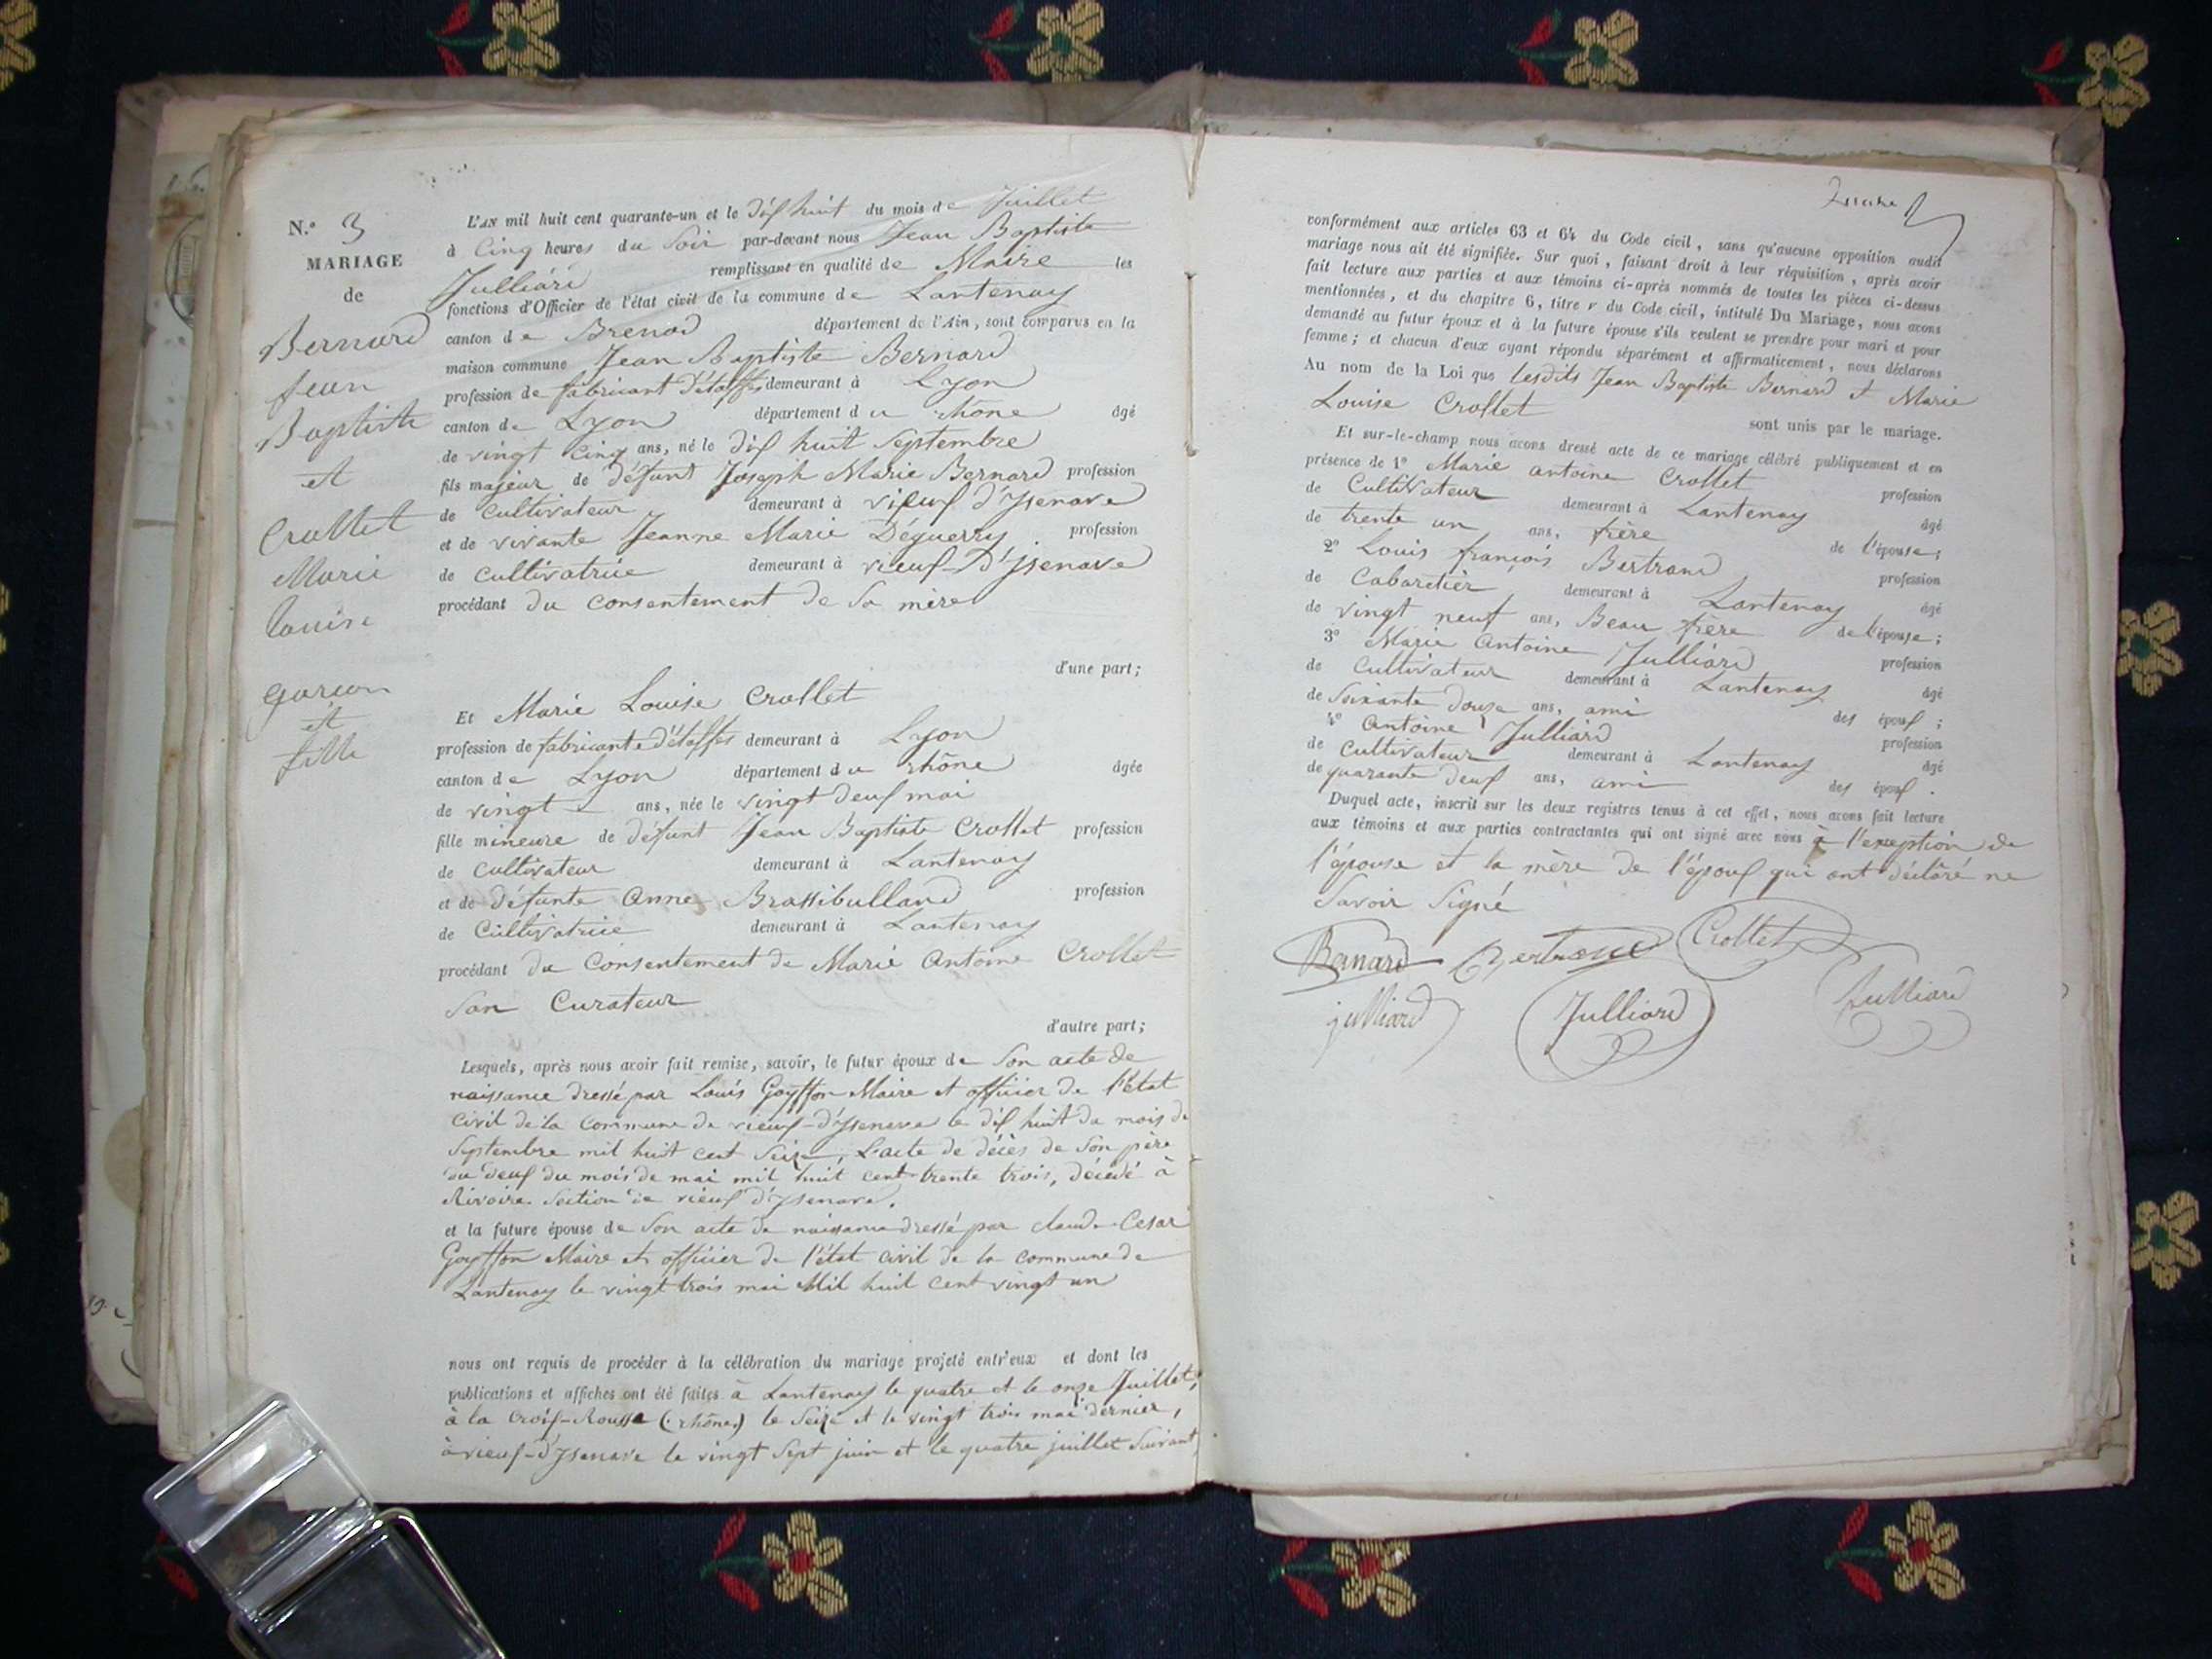 N.° 3
MARIAGE
de
Bernard
Jean
Baptiste
et
Crollet
Marie
Louise
garçon
et
fille
L'AN mil huit cent quarante-un et le dix huit du mois de Juillet
à Cinq heures du Soir par-devant nous Jean Baptiste
Julliard remplissant en qualité de Maire les
fonctions d'Officier de l'état civil de la commune de Lantenay
canton de Brenod département de l'Ain, sont comparus en la
maison commune Jean Baptiste Bernard
profession de fabricant d'étoffes demeurant à Lyon
canton de Lyon département du rhône âgé
de vingt Cinq ans, né le dix huit Septembre
fils majeur de défunt Joseph Marie Bernard profession
de Cultivateur demeurant à vieux d'Ysenave
et de vivante Jeanne Marie Déguerry profession
de Cultivatrice demeurant à vieux-D'ysenave
procédant du consentement de Sa mère
d'une part;
Et Marie Louise Crollet
profession de fabricante d'étoffes demeurant à Lyon
canton de Lyon département du rhône âgée
de vingt ans, née le vingt deux mai
fille mineure de défunt Jean Baptiste Crollet profession
de Cultivateur demeurant à Lantenay
et de défunte Anne Brassibulland profession
de Cultivatrice demeurant à Lantenay
procédant du Consentement de Marie Antoine Crollet
Son Curateur
d'autre part;
Lesquels, après nous avoir fait remise, savoir, le futur époux de Son acte de
naissance dressé par Louis Goyffon Maire et officier de l'état
civil de la Commune de vieux-d'ysenave le dix huit du mois de
Septembre mil huit cent Seize, L'acte de décès de Son père
du deux du mois de mai mil huit cent trente trois, décédé à
Rivoire Section de vieux d'ysenave.
et la future épouse de Son acte de naissance dressé par claude Cesar
Goyffon Maire et officier de l'état civil de la commune de
Lantenay le vingt trois mai Mil huit cent vingt un
nous ont requis de procéder à la célébration du mariage projeté entr'eux et dont les
publications et affiches ont été faites à Lantenay le quatre et le onze Juillet,
à la Croix-Rousse (rhône) le Seize et le vingt trois mai dernier,
à vieux-d'ysenave le vingt Sept juin et le quatre juillet Suivant
conformément aux articles 63 et 64 du Code civil, sans qu'aucune opposition audit
mariage nous ait été signifiée. Sur quoi, faisant droit à leur réquisition, après avoir
fait lecture aux parties et aux témoins ci-après nommés de toutes les pièces ci-dessus
mentionnées, et du chapitre 6, titre v du Code civil, intitulé Du Mariage, nous avons
demandé au futur époux et à la future épouse s'ils veulent se prendre pour mari et pour
femme; et chacun d'eux ayant répondu séparément et affirmativement, nous déclarons
Au nom de la Loi que lesdits Jean Baptiste Bernard et Marie
Louise Crollet
sont unis par le mariage.
Et sur-le-champ nous avons dressé acte de ce mariage célébré publiquement et en
présence de 1° Marie antoine Crollet profession
de Cultivateur demeurant à Lantenay âgé
de trente un ans, frère de l'épouse;
2° Louis françois Bertrand profession
de Cabaretier demeurant à Lantenay âgé
de vingt neuf ans, Beau frère de l'épouse;
3° Marie Antoine Julliard profession
de Cultivateur demeurant à Lantenay âgé
de Soixante douze ans, ami des époux;
4° Antoine Julliard profession
de Cultivateur demeurant à Lantenay âgé
de quarante deux ans, ami des époux.
Duquel acte, inscrit sur les deux registres tenus à cet effet, nous avons fait lecture
aux témoins et aux parties contractantes qui ont signé avec nous à l'exeption de
l'épouse et la mère de l'époux qui ont déclaré ne
Savoir Signé
Bernard Bertrand Crollet
julliard Julliard Julliard